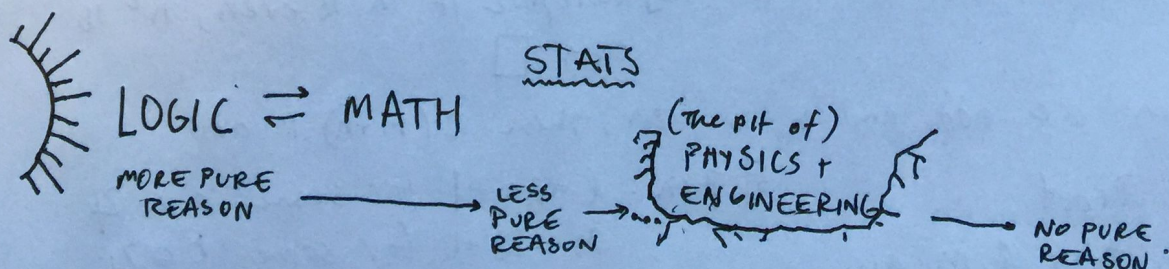 STATS
LOGIC ⇌ MATH
(The pit of)
PHYSICS +
ENGINEERING
MORE PURE
REASON
LESS
PURE
REASON
NO PURE
REASON.